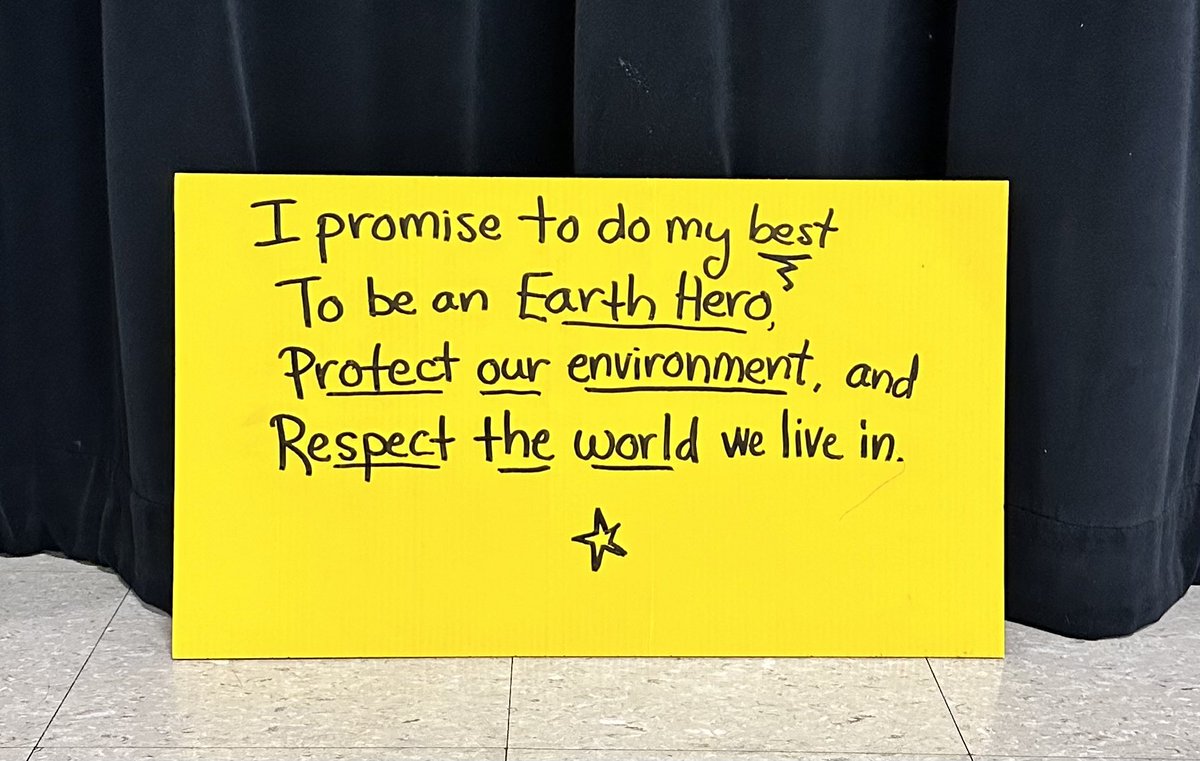 I promise to do my best
To be an Earth Hero,
Protect our environment, and
Respect the world we live in.